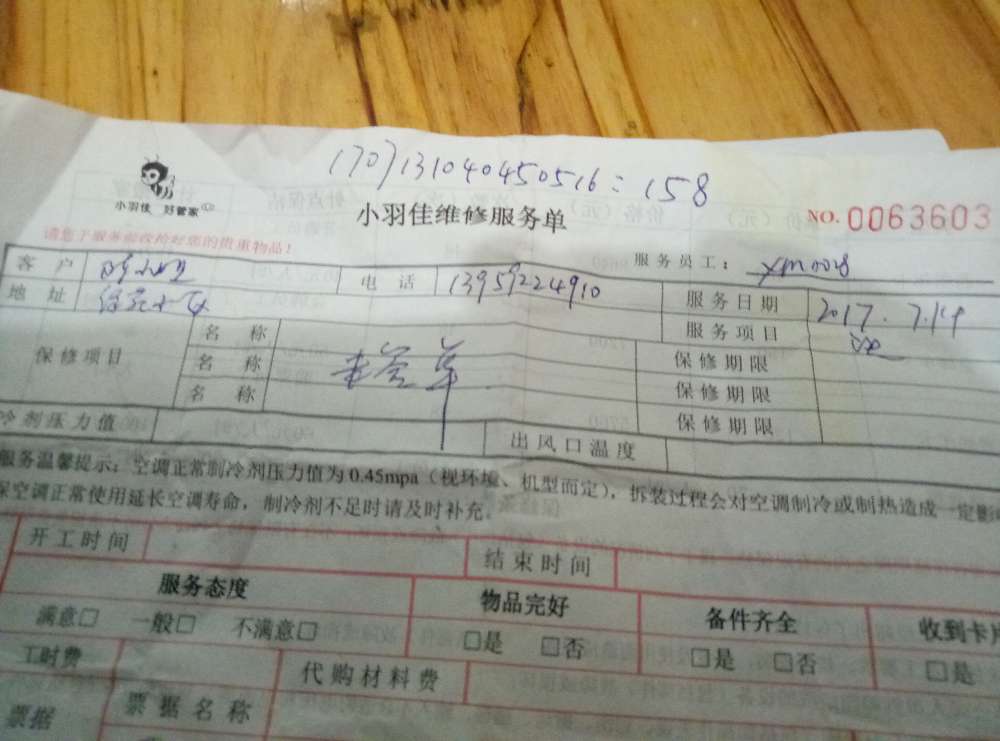 1707131040450516=158
小羽佳 好管家
小羽佳维修服务单
NO. 0063603
请您于服务前收拾好您的贵重物品！
服务员工： XM008
客 户 电 话 13959224910 服务日期 2017.7.14
地 址 服务项目
保修项目 名 称 保修期限
名 称 保修期限
名 称 保修期限
冷剂压力值 出风口温度
服务温馨提示：空调正常制冷剂压力值为0.45mpa（视环境、机型而定），拆装过程会对空调制冷或制热造成一定影
保空调正常使用延长空调寿命，制冷剂不足时请及时补充。
开工时间 结束时间
服务态度 物品完好 备件齐全 收到卡片
满意□ 一般□ 不满意□ □是 □否 □是 □否 □是
工时费 代购材料费
票据 票据名称